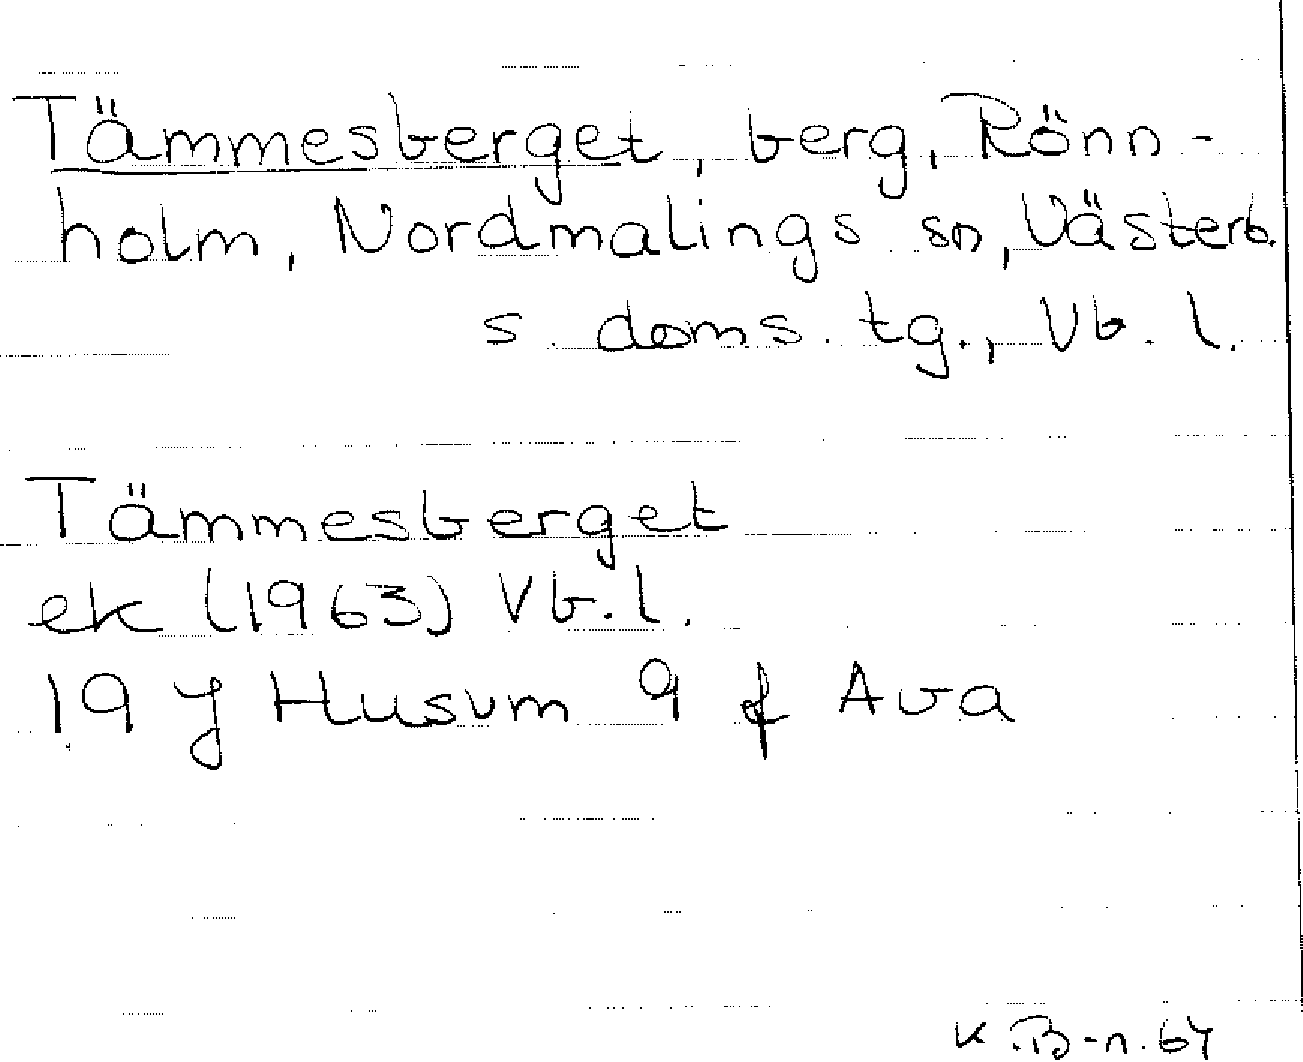 Tämmesberget, berg, Rönn-
holm, Nordmalings sn, Västerb.
s. doms. tg., Vb. l.
Tämmesberget
ek (1963) Vb. l.
19 J Husum 9 f Ava
K.B-n. 64